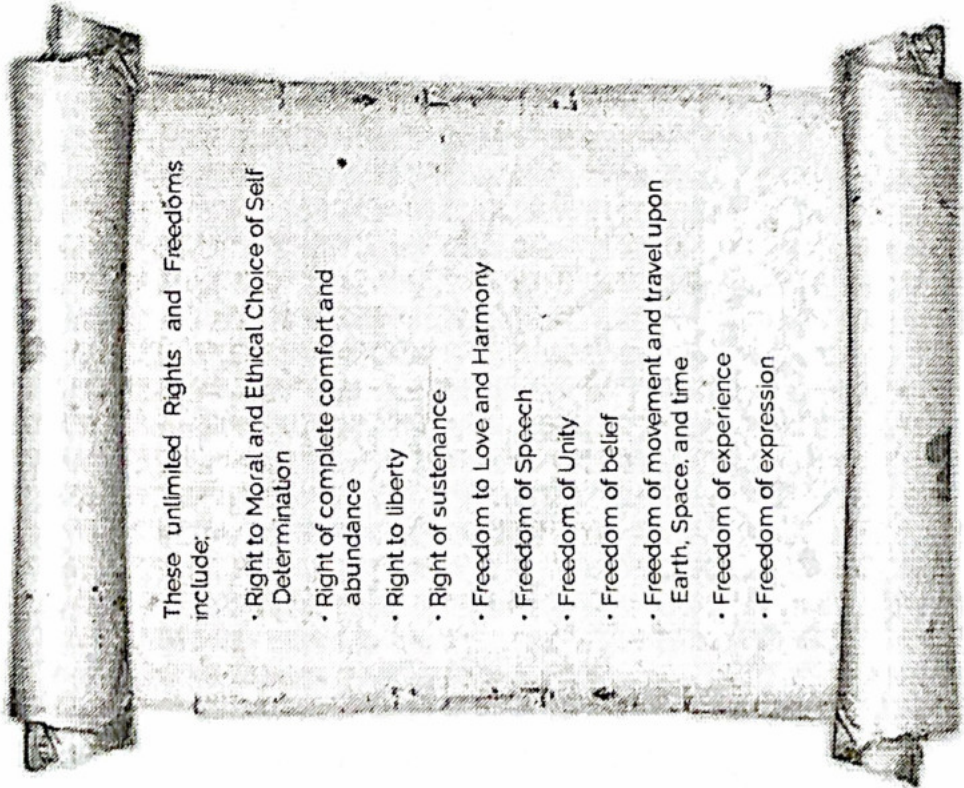 These unlimited Rights and Freedoms
include:
• Right to Moral and Ethical Choice of Self
Determination
• Right of complete comfort and
abundance
• Right to liberty
• Right of sustenance
• Freedom to Love and Harmony
• Freedom of Speech
• Freedom of Unity
• Freedom of belief
• Freedom of movement and travel upon
Earth, Space, and time
• Freedom of experience
• Freedom of expression